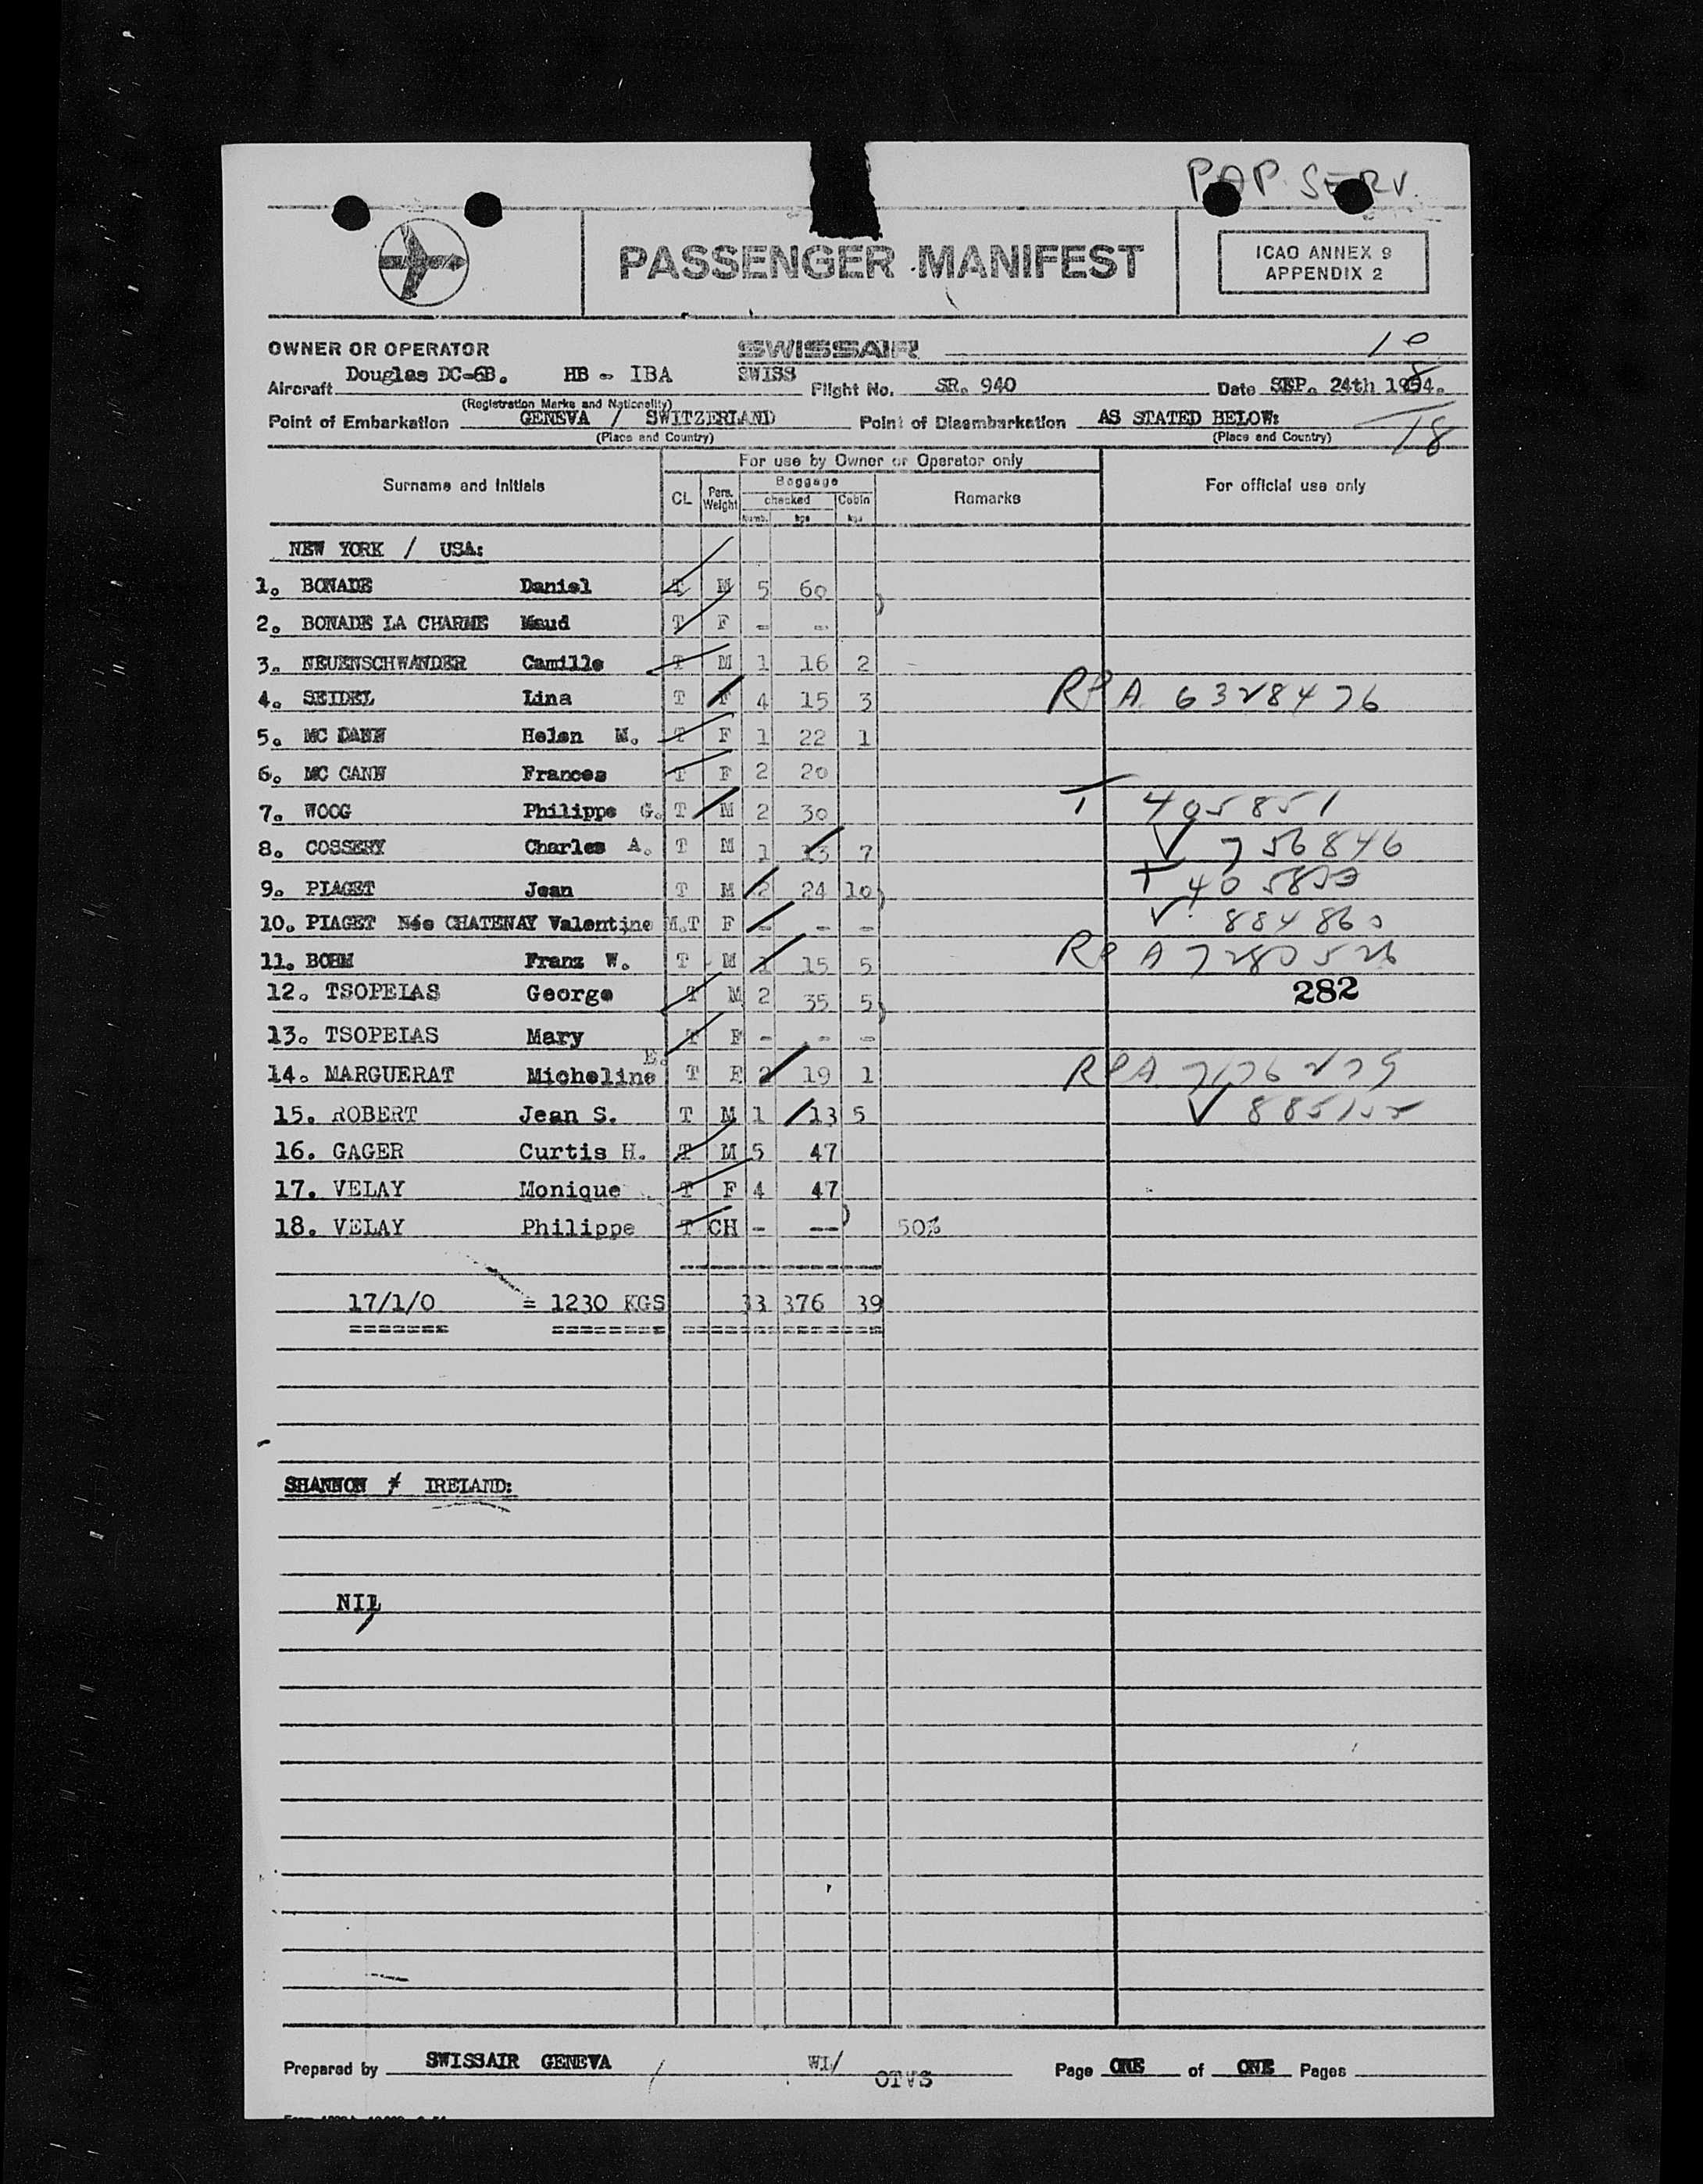 PAP. SERV.
PASSENGER MANIFEST
ICAO ANNEX 9
APPENDIX 2
OWNER OR OPERATOR SWISSAIR 10
Aircraft Douglas DC-6B. HB - IBA SWISS Flight No. SR. 940 Date SEP. 24th 1954. 8
(Registration Marks and Nationality)
Point of Embarkation GENEVA / SWITZERLAND Point of Disembarkation AS STATED BELOW: 18
(Place and Country) (Place and Country)
For use by Owner or Operator only
Surname and Initials CL Pers. Weight Baggage Remarks For official use only
checked Cabin
Numb. kgs kgs
NEW YORK / USA:
1. BONADE Daniel T M 5 60 )
2. BONADE LA CHARME Maud T F - -
3. NEUENSCHWANDER Camille T M 1 16 2
4. SEIDEL Lina T F 4 15 3 RPA 6328476
5. MC DANN Helen M. T F 1 22 1
6. MC CANN Frances T F 2 20
7. WOOG Philippe G. T M 2 30 T 405851
8. COSSERY Charles A. T M 1 13 7 √ 756846
9. PIAGET Jean T M 2 24 10) T
10. PIAGET Née CHATENAY Valentine M. T F - - - √
11. BOHM Franz W. T M 1 15 5 RPA 7280526
12. TSOPELAS George T M 2 35 5) 282
13. TSOPELAS Mary T F - - -
14. MARGUERAT Micheline E. T F 2 19 1 RPA
15. ROBERT Jean S. T M 1 13 5 √
16. GAGER Curtis H. T M 5 47
17. VELAY Monique T F 4 47
18. VELAY Philippe T CH - -- ) 50%
17/1/0 = 1230 KGS 33 376 39
SHANNON / IRELAND:
NIL
Prepared by SWISSAIR GENEVA WL/ Page ONE of ONE Pages